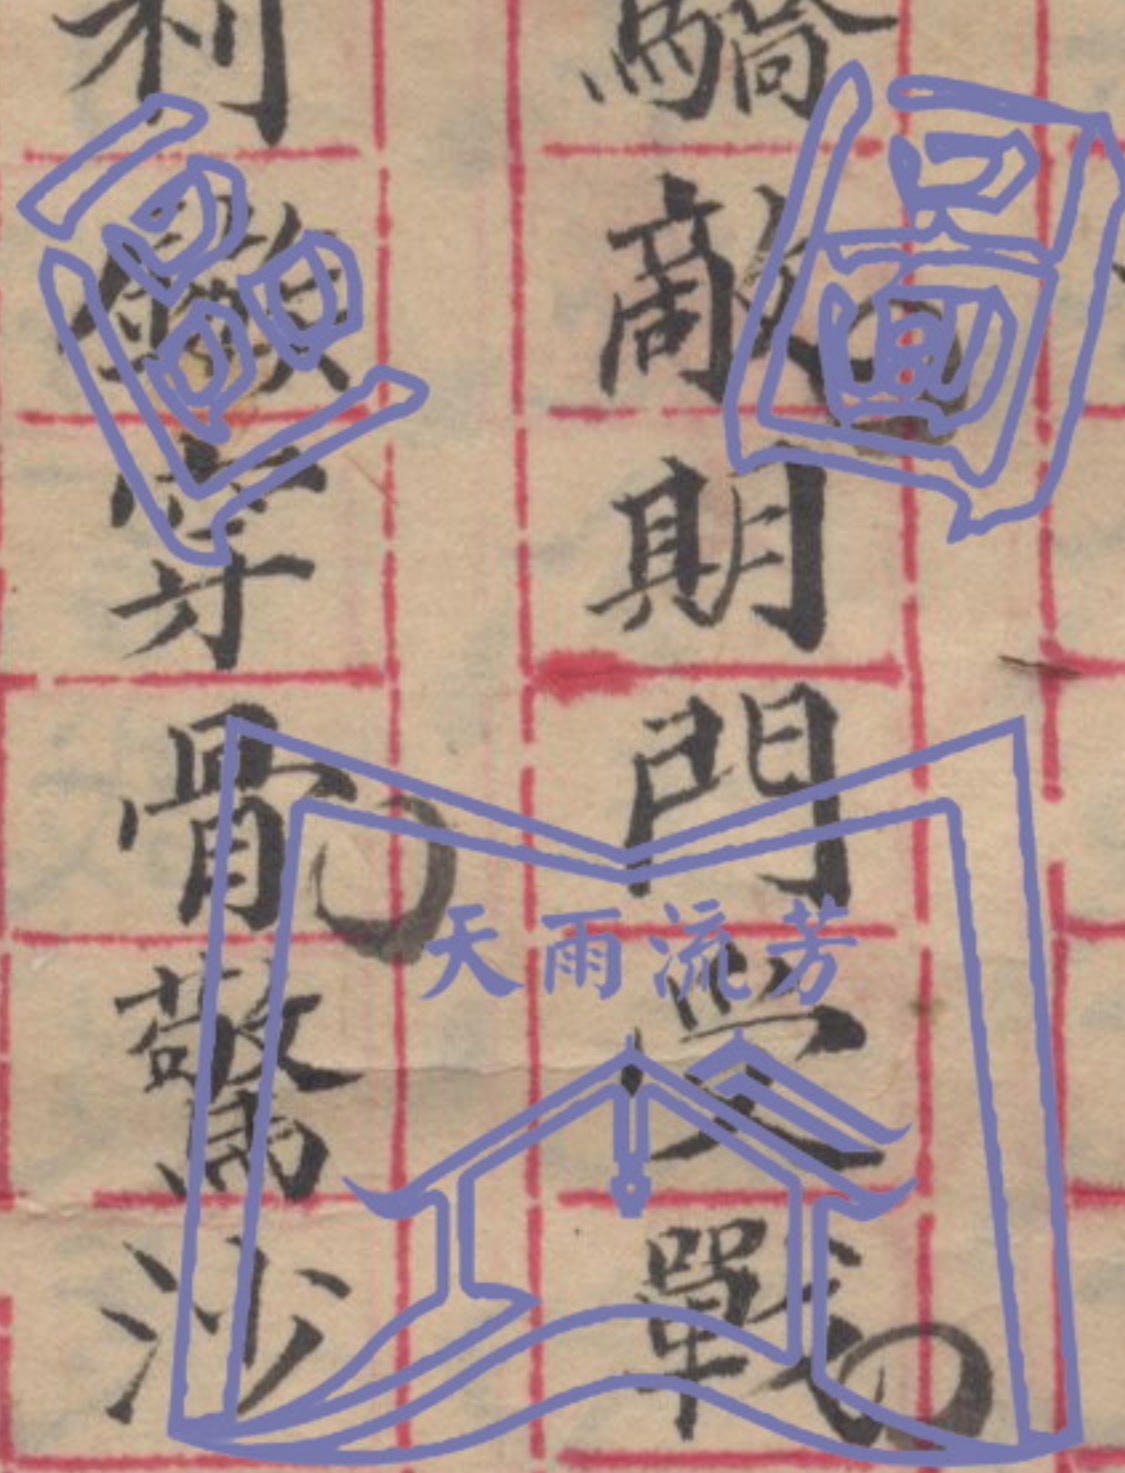 驕敵期門受戰
利鏃穿骨驚沙
天雨流芳